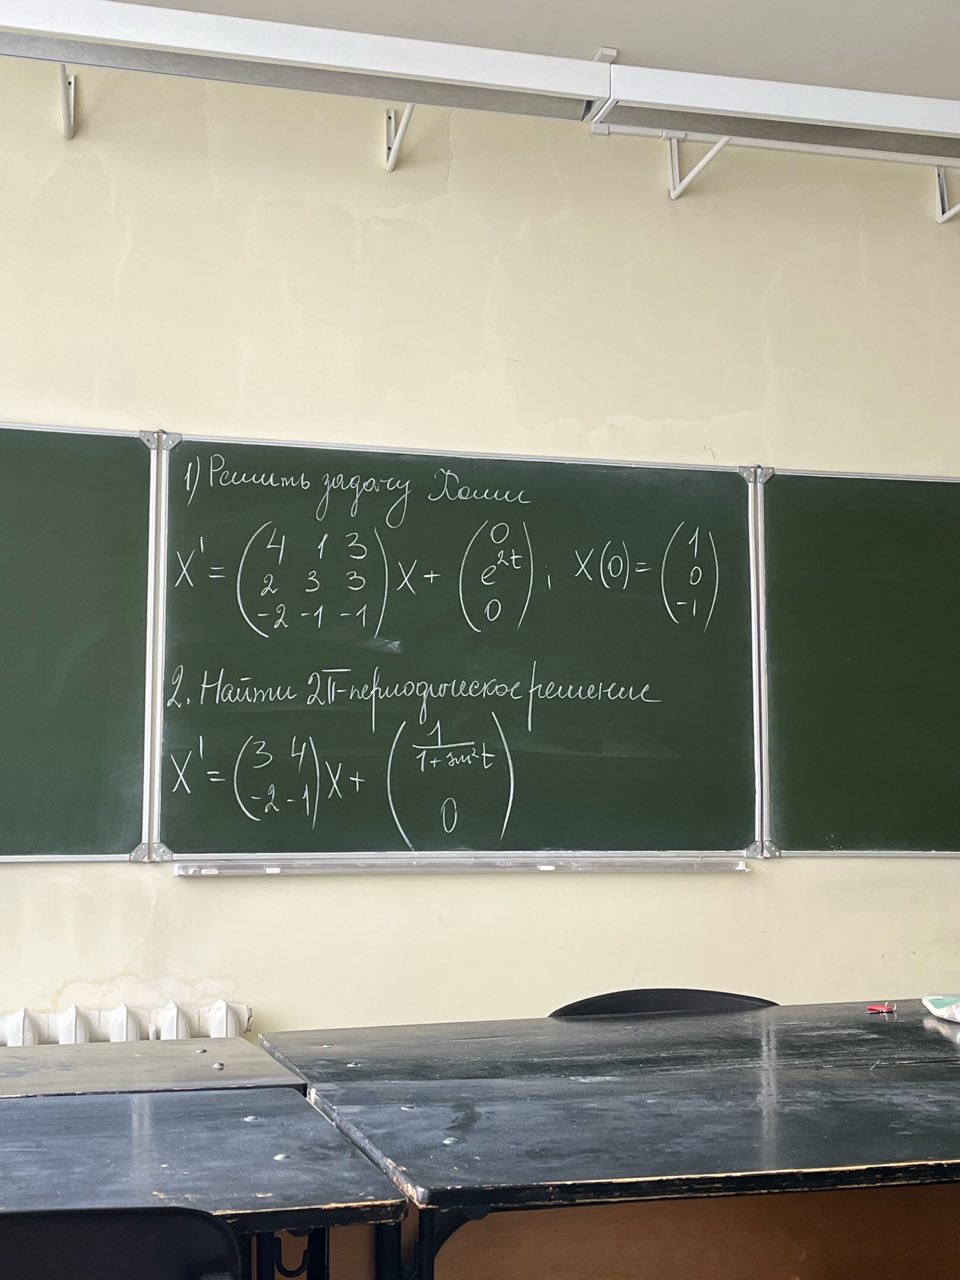 1) Решить задачу Коши
X' = (4 1 3
2 3 3
-2 -1 -1) X + (0
e^{2t}
0); X(0) = (1
0
-1)
2. Найти 2π-периодическое решение
X' = (3 4
-2 -1) X + (1/(1+sin²t)
0)